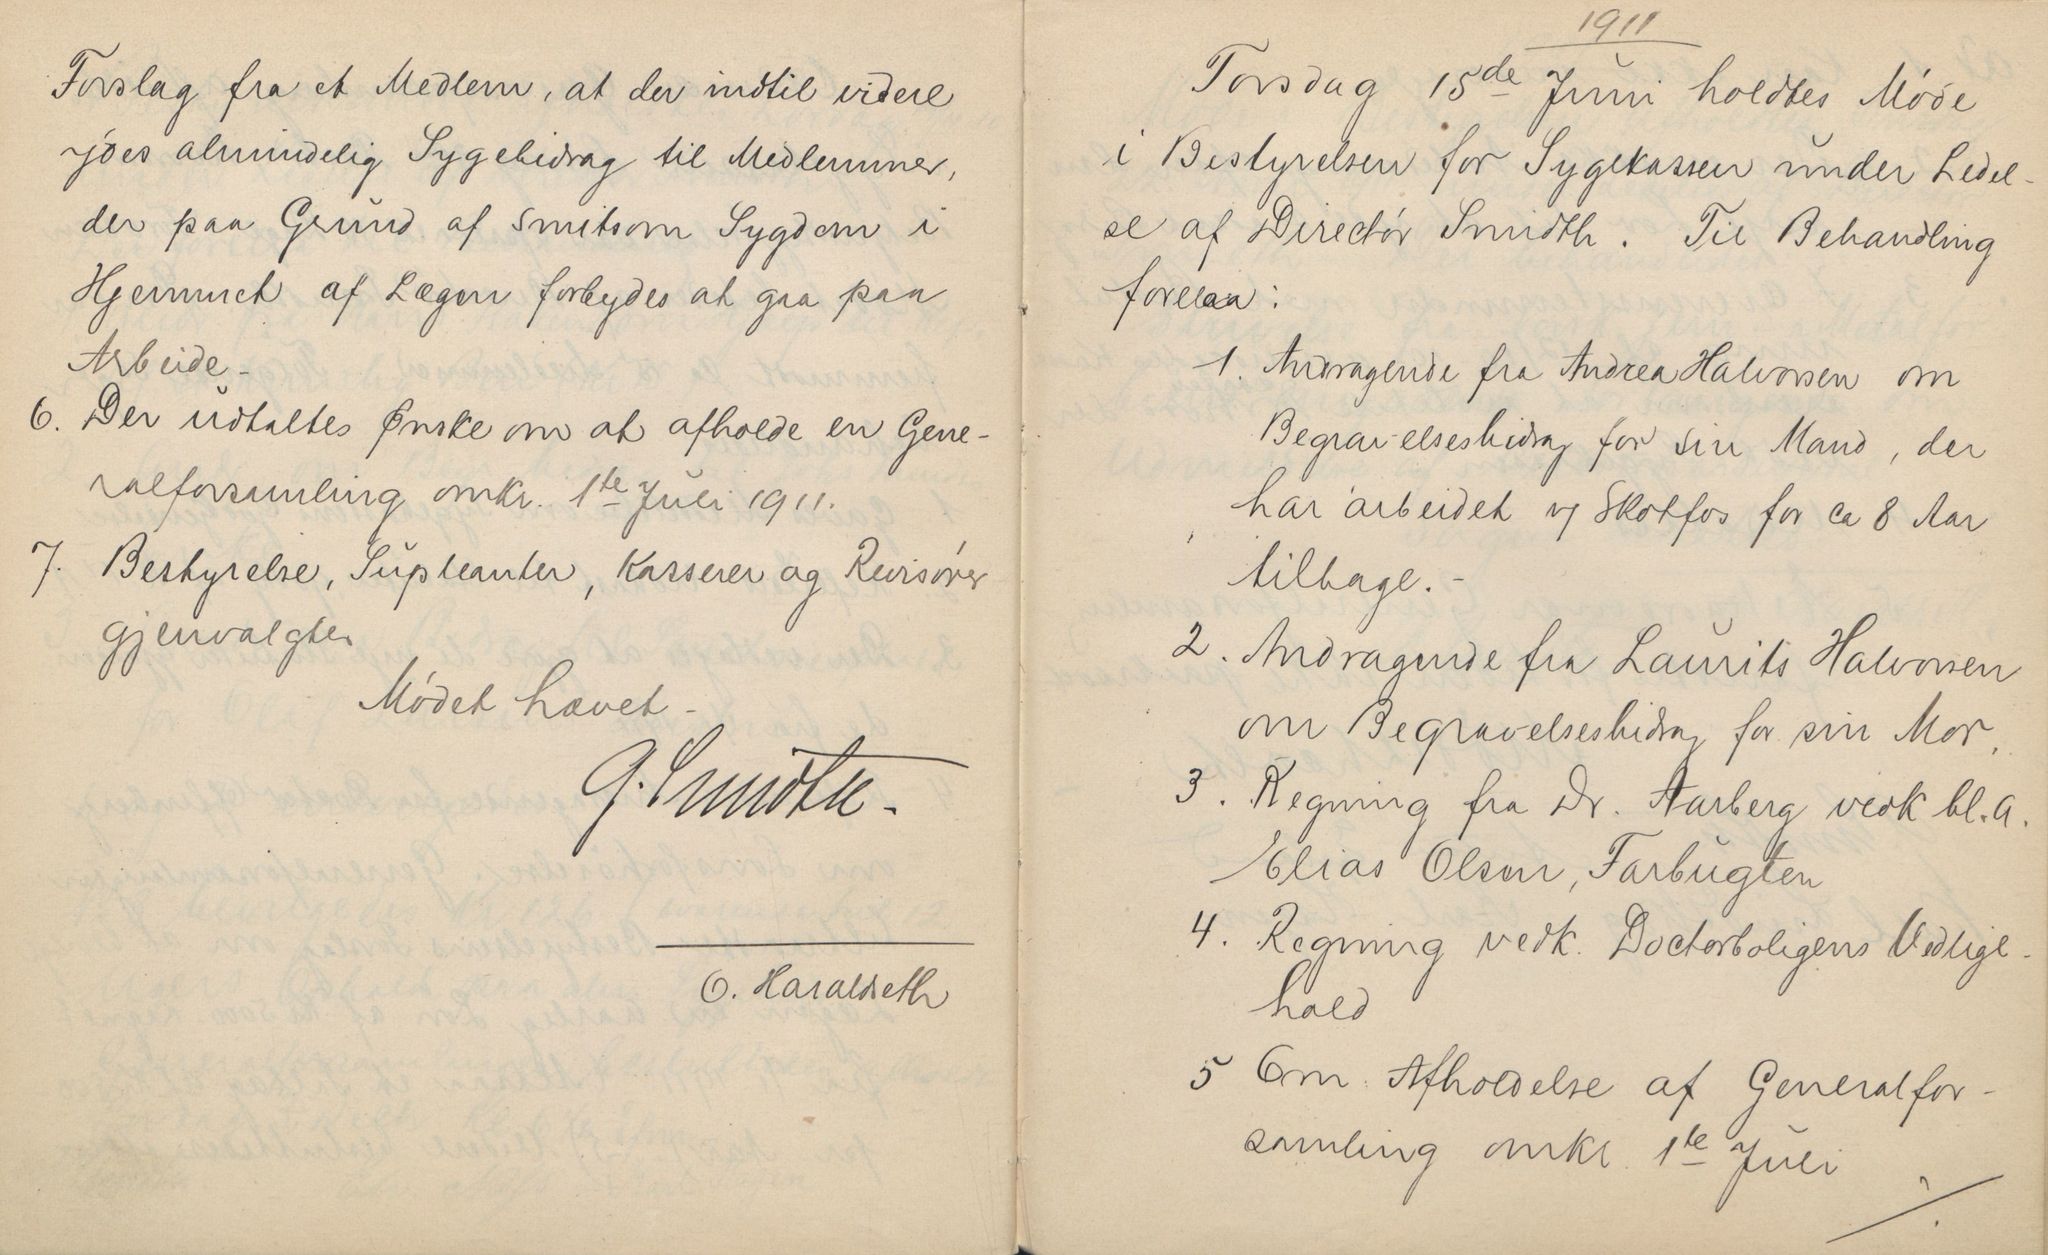 Forslag fra et Medlem, at der indtil videre
ydes almindelig Sygebidrag til Medlemmer,
der paa Grund af smitsom Sygdom i
Hjemmet af Lægen forbydes at gaa paa
Arbeide.
6. Der udtaltes Ønske om at afholde en Gene-
ralforsamling omkr. 1te Juli 1911.
7. Bestyrelse, Supleanter, Kasserer og Revisører
gjenvalgtes
Mødet hævet -
G. Smidth.
O. Haraldseth
1911
Torsdag 15de Juni holdtes Møde
i Bestyrelsen for Sygekassen under Ledel-
se af Directør Smidth. Til Behandling
forelaa:
1. Andragende fra Andrea Halvorsen om
Begravelsesbidrag for sin Mand, der
har arbeidet v/ Skotfos for ca 8 Aar
tilbage. -
2. Andragende fra Laurits Halvorsen
om Begravelsesbidrag for sin Mor.
3. Regning fra Dr. Aarberg vedk bl. a.
Elias Olsen, Farbugten
4. Regning vedk. Doctorboligens Vedlige-
hold
5 Om Afholdelse af Generalfor-
samling omkr. 1te Juli
./.